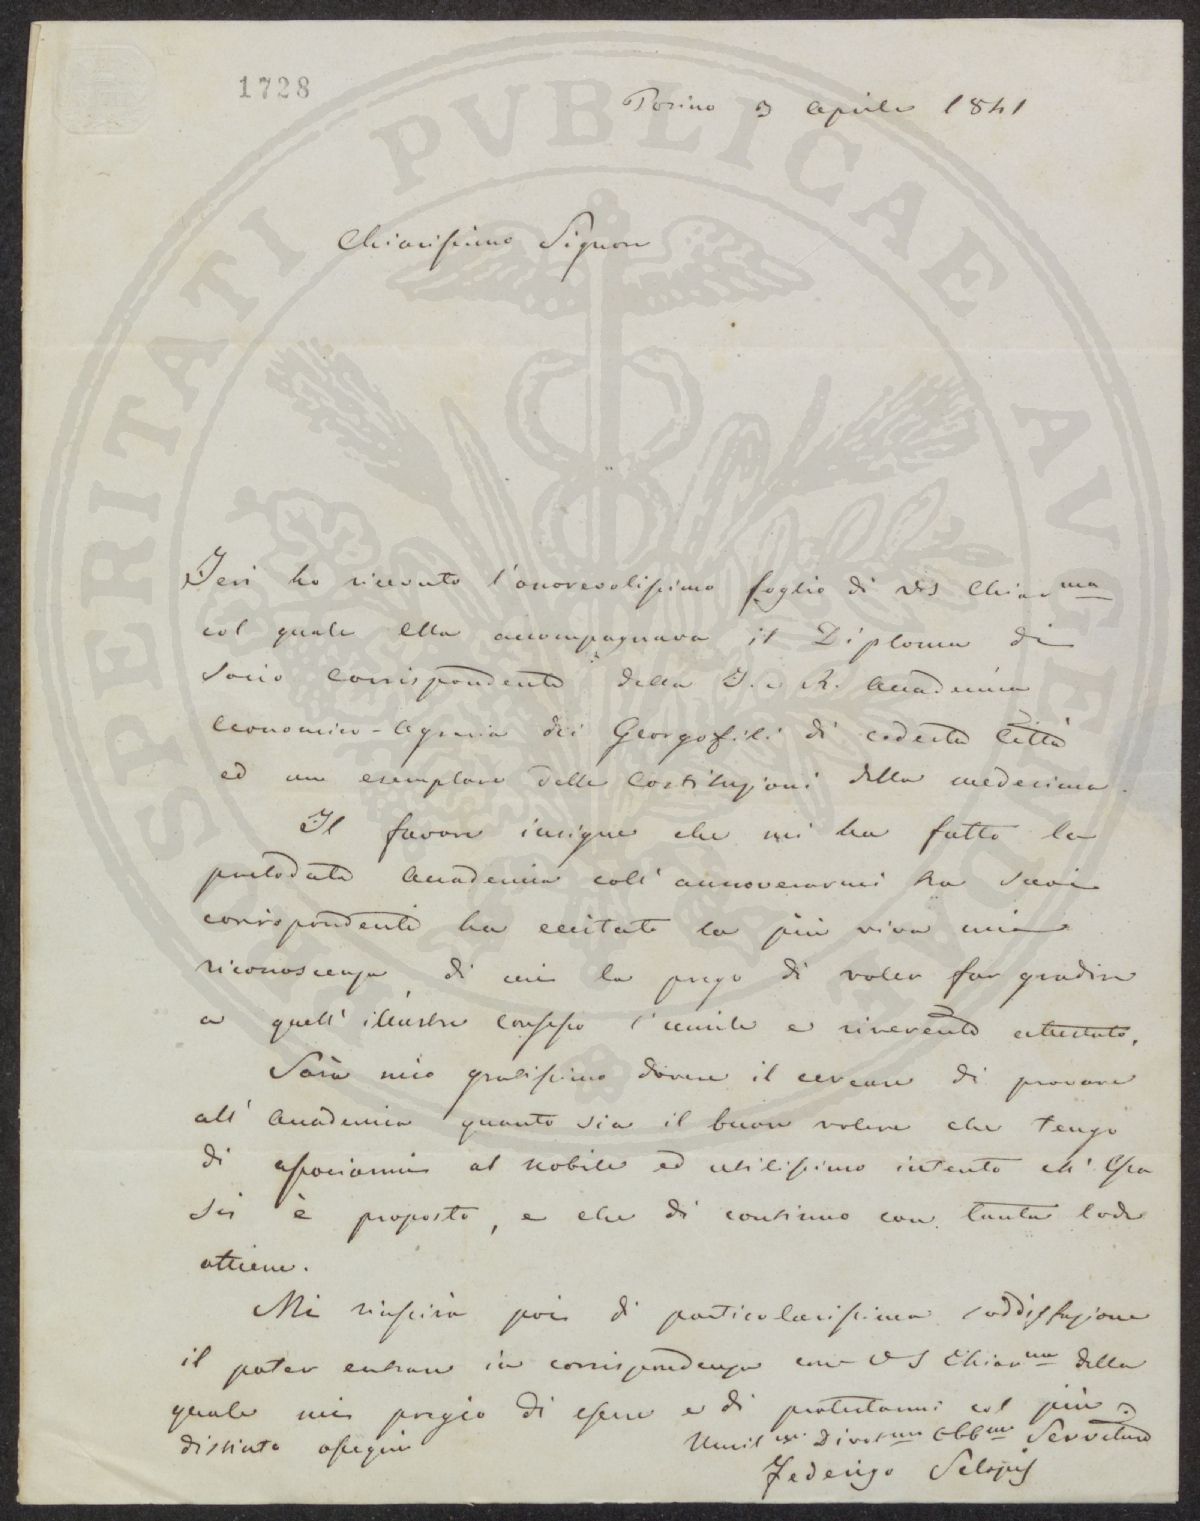 1728
Torino 3 Aprile 1841
Chiarissimo Signore
Jeri ho ricevuto l'onorevolissimo foglio di VS Chiar.ma
col quale Ella accompagnava il Diploma di
Socio Corrispondente della I. e R. Accademia
Economico-Agraria dei Georgofili di codesta Città
ed un esemplare delle Costituzioni della medesima.
Il favore insigne che mi ha fatto la
prelodata Accademia coll'annoverarmi fra Socii
corrispondenti ha eccitato la più viva mia
riconoscenza, di cui la prego di voler far gradire
a quell'illustre Consesso l'umile e riverente attestato.
Sarà mio gratissimo dovere il cercare di provare
all'Accademia quanto sia il buon volere che tengo
di associarmi al nobile ed utilissimo intento ch'Essa
si è proposto, e che di continuo con tanta lode
ottiene.
Mi riuscirà poi di particolarissima soddisfazione
il poter entrare in corrispondenza con VS Chiar.ma della
quale mi pregio di essere e di protestarmi col più
distinto ossequio
Umil.mo Divot.mo Obb.mo Servitore
Federigo Sclopis
SPERITATI PVBLICAE AVGENDAE